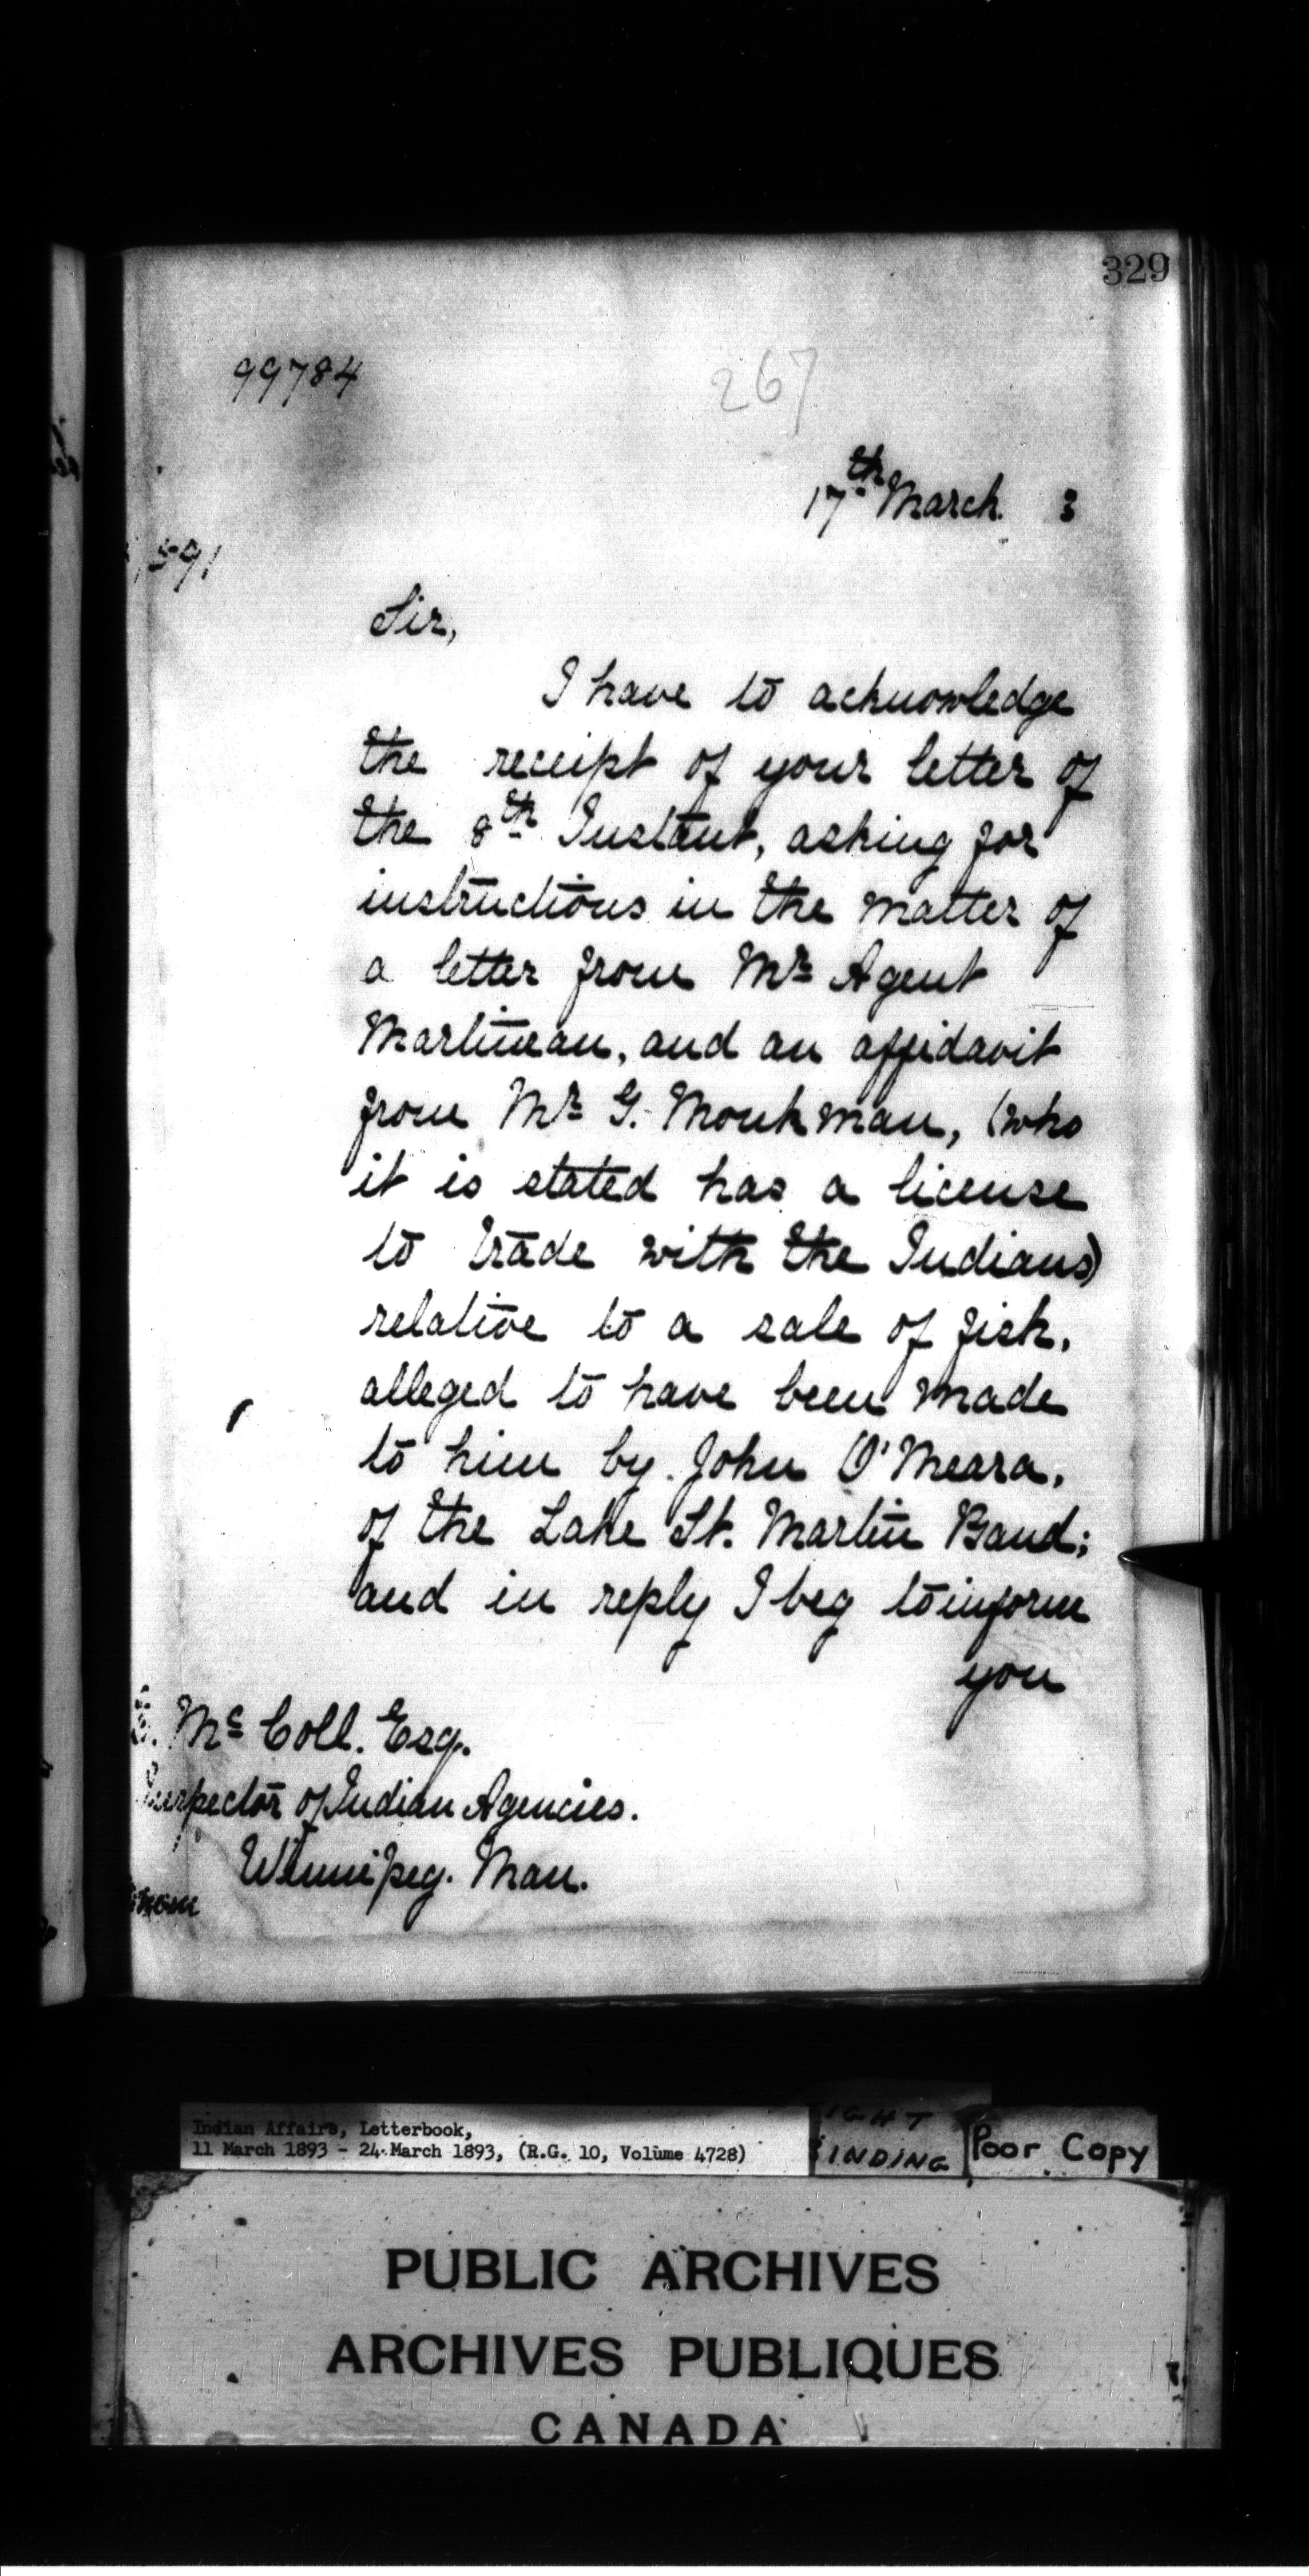 329
99784
267
17th March. 3
,591
Sir,
I have to acknowledge
the receipt of your letter of
the 8th Instant, asking for
instructions in the matter of
a letter from Mr Agent
Martineau, and an affidavit
from Mr G. Monkman, (who
it is stated has a license
to trade with the Indians)
relative to a sale of fish,
alleged to have been made
to him by John O'Meara,
of the Lake St. Martin Band;
and in reply I beg to inform
you
Mc Coll. Esq.
Inspector of Indian Agencies.
Winnipeg. Man.
Indian Affairs, Letterbook,
11 March 1893 - 24 March 1893, (R.G. 10, Volume 4728)
IGHT
INDING
Poor Copy
PUBLIC ARCHIVES
ARCHIVES PUBLIQUES
CANADA